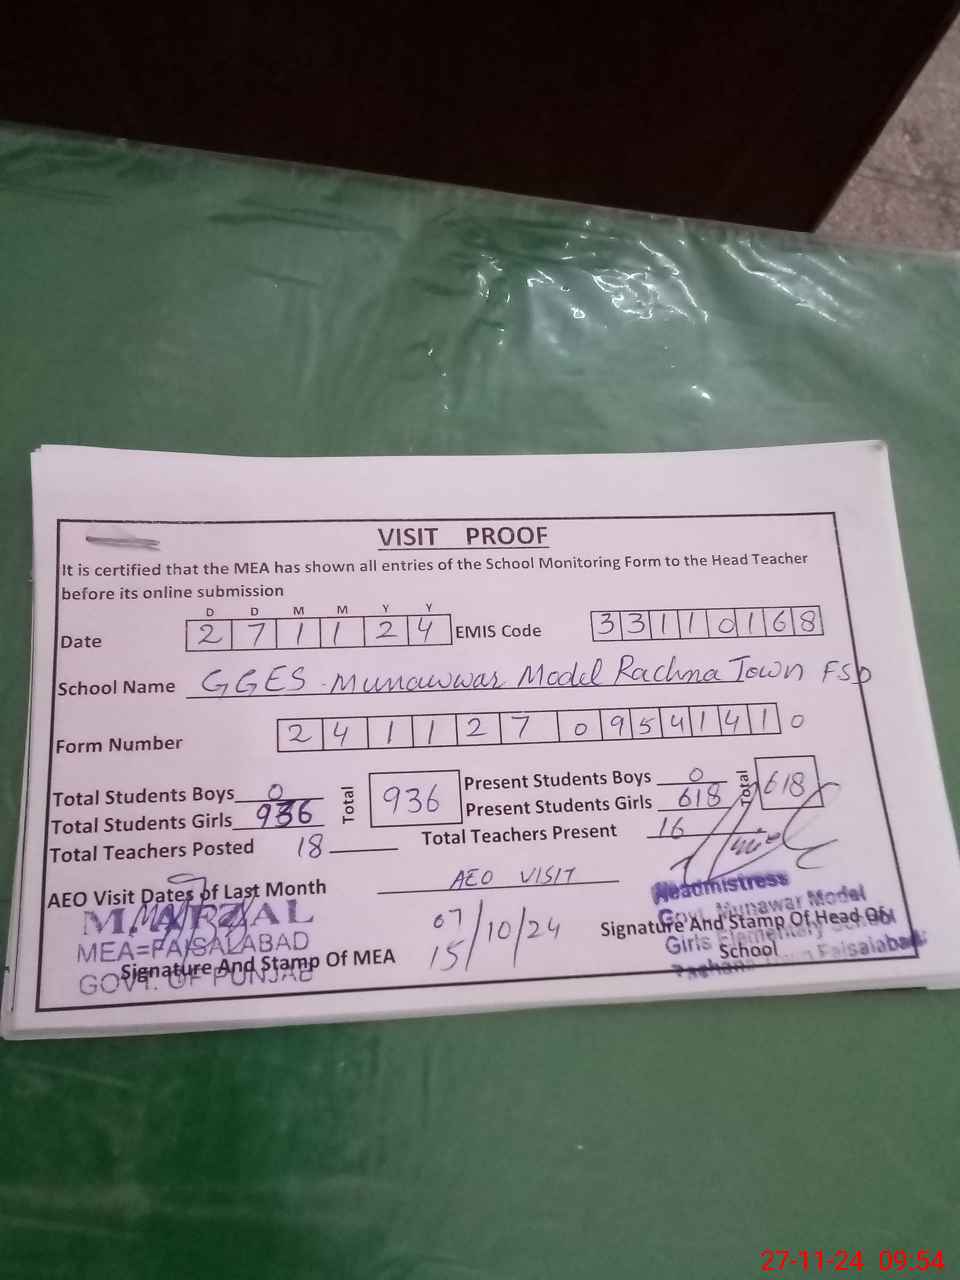 VISIT PROOF
It is certified that the MEA has shown all entries of the School Monitoring Form to the Head Teacher
before its online submission
D D M M Y Y
Date 2 7 1 1 2 4 EMIS Code 3 3 1 1 0 1 6 8
School Name GGES Munawwar Model Rachna Town FSD
Form Number 2 4 1 1 2 7 0 9 5 4 1 4 1 0
Total Students Boys 0 Total 936 Present Students Boys 0 Total 618
Total Students Girls 936 Present Students Girls 618
Total Teachers Posted 18 Total Teachers Present 16
AEO Visit Dates of Last Month AEO VISIT
07
15 /10/24
M. AFZAL
MEA=FAISALABAD
GOVT. OF PUNJAB
Signature And Stamp Of MEA
Headmistress
Govt. Munawar Model
Girls Elementary School
Rachana Town Faisalabad
Signature And Stamp Of Head Of
School
27-11-24 09:54